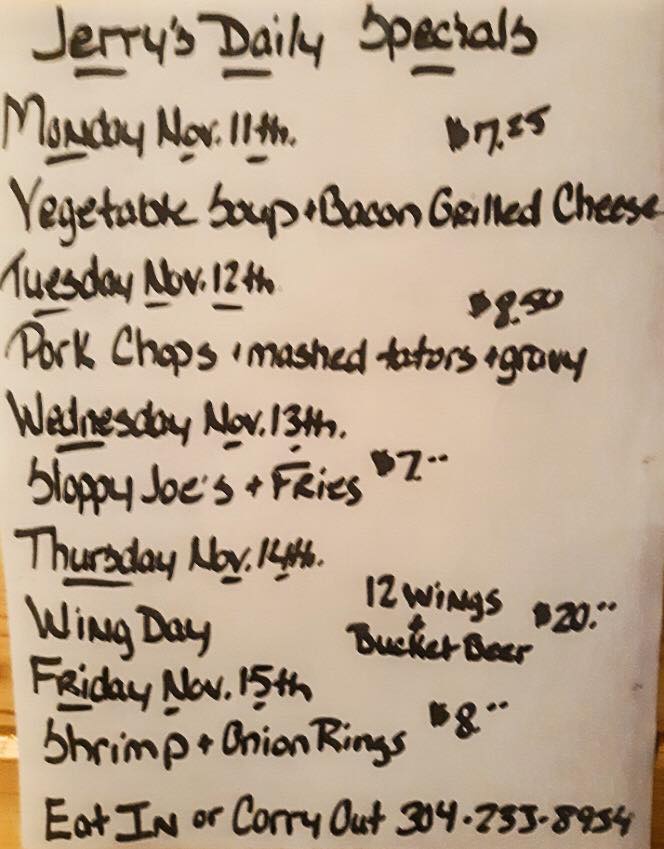 Jerry's Daily Specials
Monday Nov. 11th. $7.25
Vegetable Soup + Bacon Grilled Cheese
Tuesday Nov. 12th $8.50
Pork Chops + mashed tators + gravy
Wednesday Nov. 13th.
Sloppy Joe's + Fries $7..
Thursday Nov. 14th.
Wing Day 12 Wings + Bucket Beer $20...
Friday Nov. 15th
Shrimp + Onion Rings $8..
Eat In or Carry Out 304-233-8954